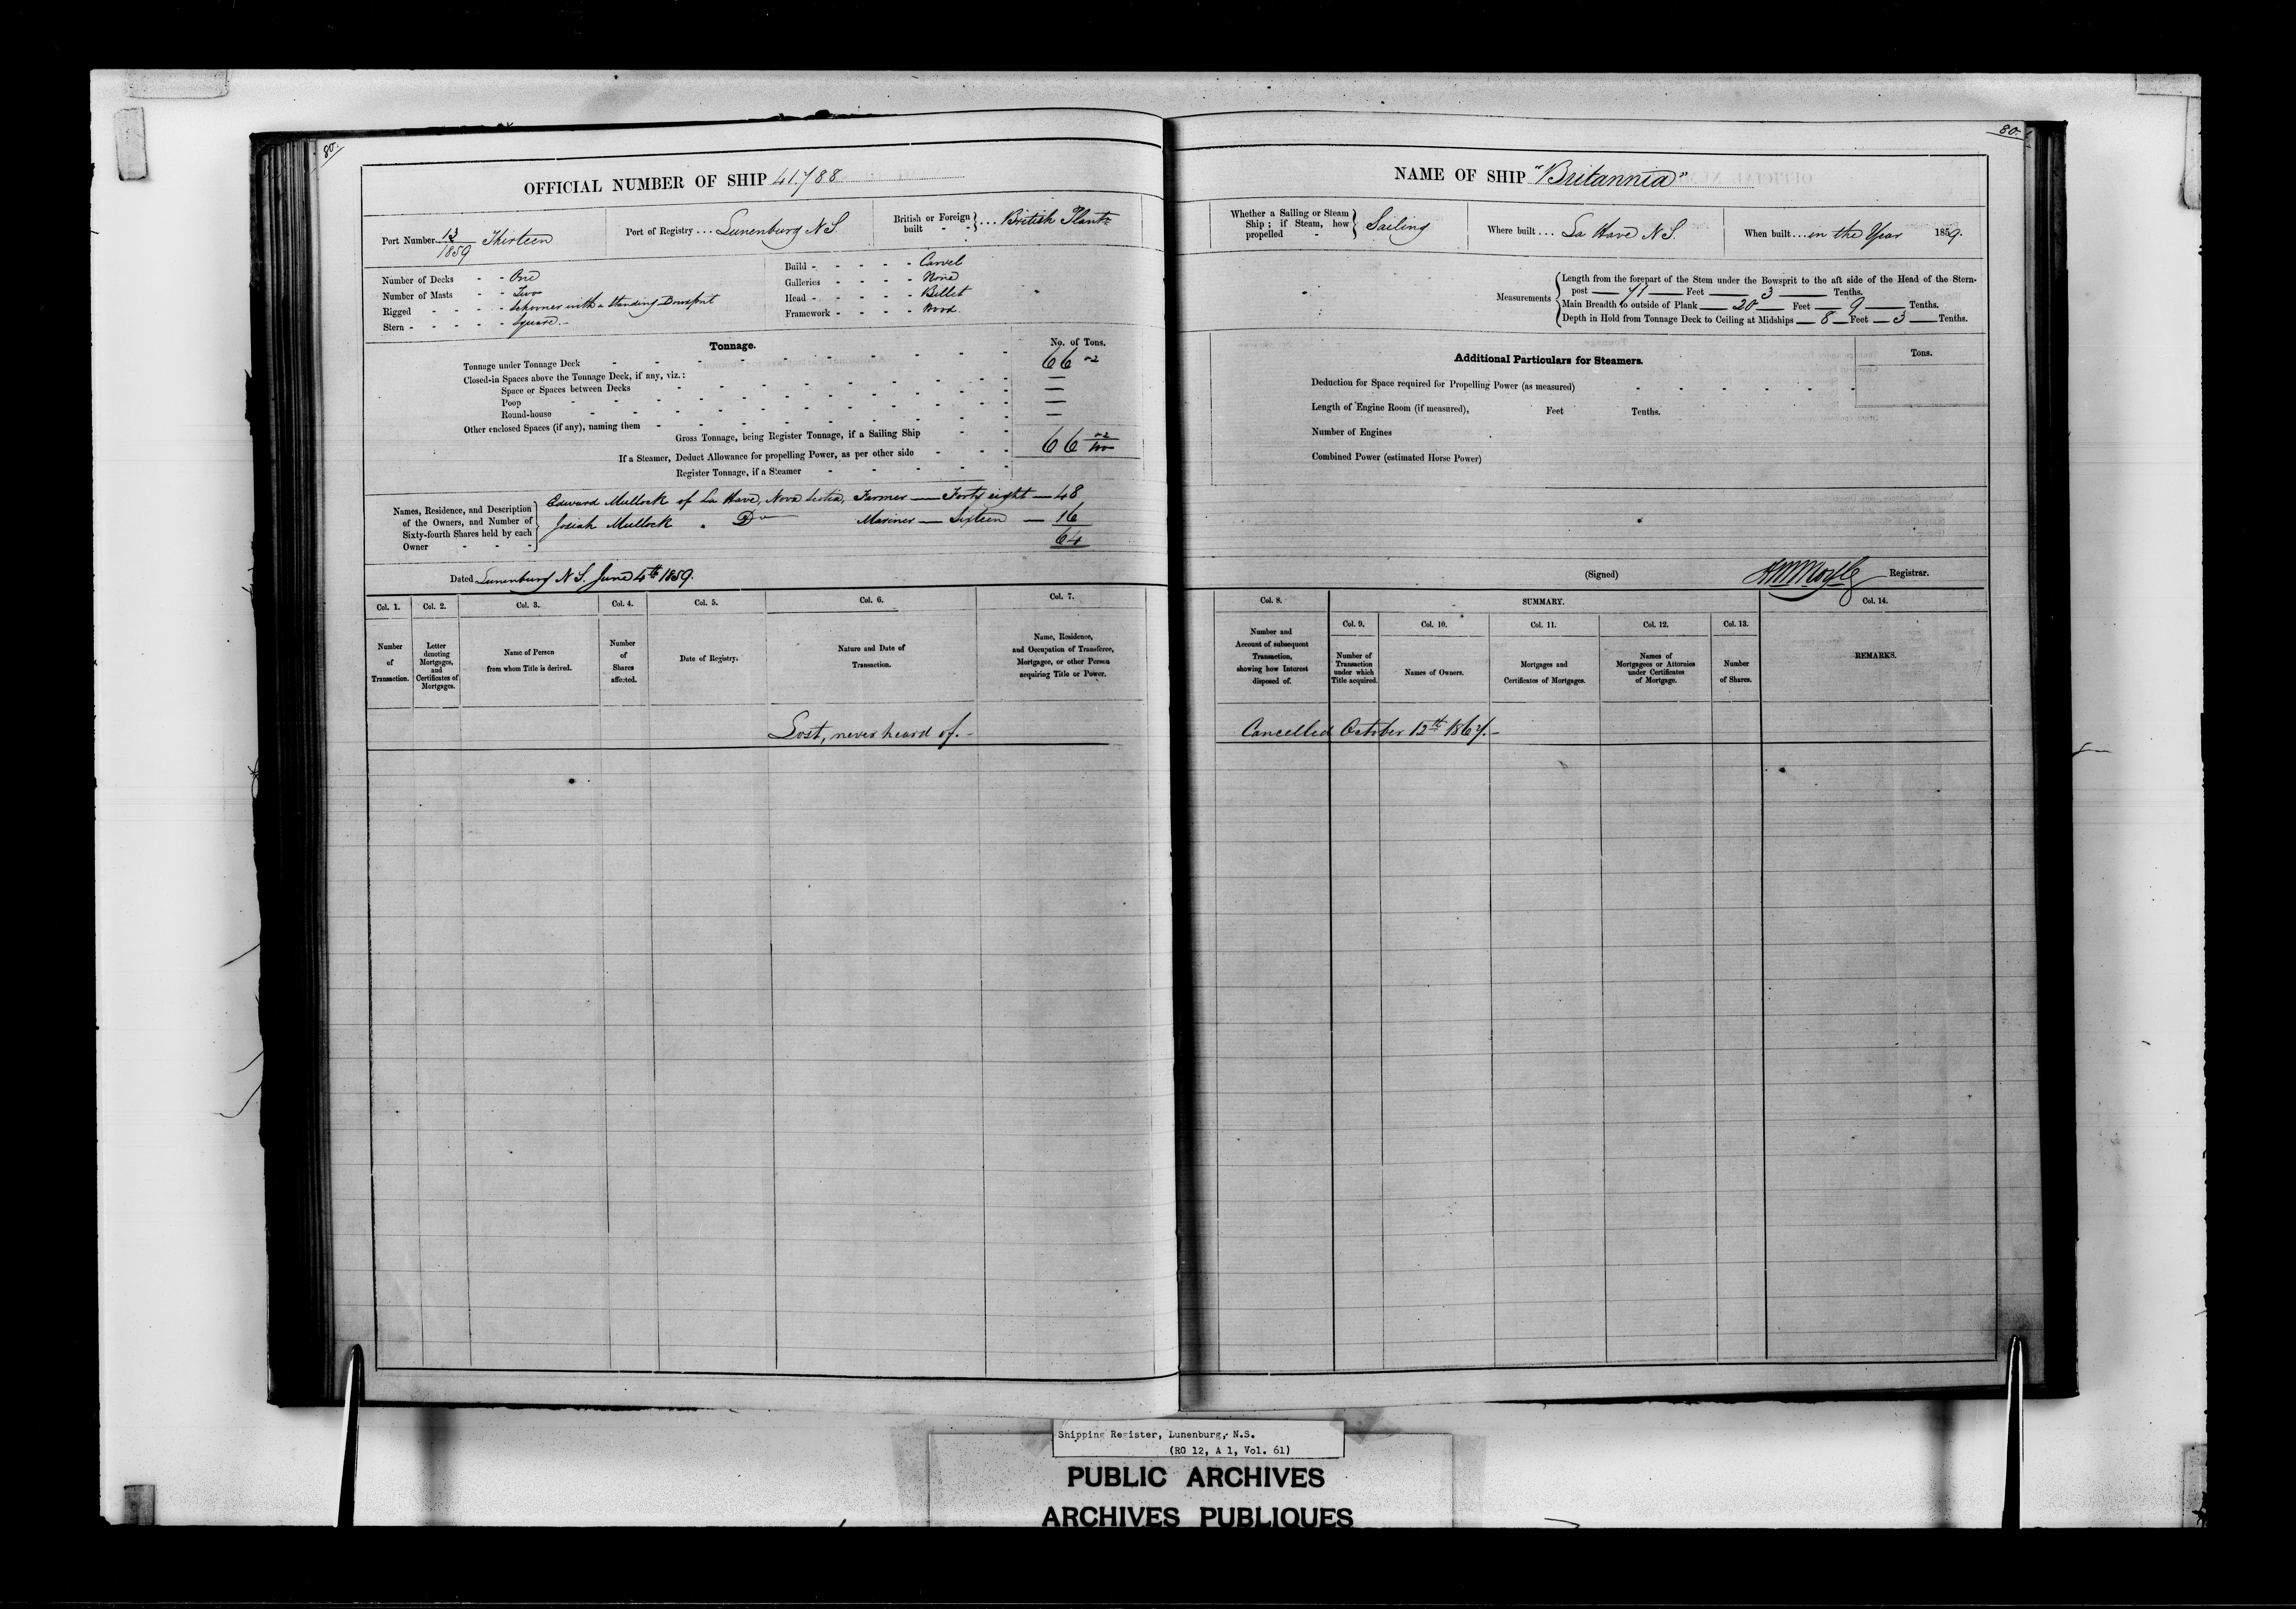 80.
OFFICIAL NUMBER OF SHIP 41.788
Port Number 13/1859 Thirteen
Port of Registry ... Lunenburg N S
British or Foreign built - - } ... British Plantn
Number of Decks - - One
Number of Masts - - Two
Rigged - - - - Schooner with a standing Bowsprit
Stern - - - - - Square.-
Build - - - - - Carvel
Galleries - - - - None
Head - - - - - Billet
Framework - - - - Wood.
Tonnage.
No. of Tons.
Tonnage under Tonnage Deck 66 02
Closed-in Spaces above the Tonnage Deck, if any, viz.:
Space or Spaces between Decks —
Poop —
Round-house —
Other enclosed Spaces (if any), naming them —
Gross Tonnage, being Register Tonnage, if a Sailing Ship 66 02/100
If a Steamer, Deduct Allowance for propelling Power, as per other side
Register Tonnage, if a Steamer
Names, Residence, and Description
of the Owners, and Number of
Sixty-fourth Shares held by each
Owner - - -
Edward Mullock of La Have, Nova Scotia, Farmer — Forty eight — 48
Josiah Mullock . Do Mariner — Sixteen — 16
64
Dated Lunenburg N S. June 4th 1859.
Col. 1. Col. 2. Col. 3. Col. 4. Col. 5. Col. 6. Col. 7.
Number of Transaction.
Letter denoting Mortgages, and Certificates of Mortgages.
Name of Person from whom Title is derived.
Number of Shares affected.
Date of Registry.
Nature and Date of Transaction.
Name, Residence, and Occupation of Transferee, Mortgagee, or other Person acquiring Title or Power.
Lost, never heard of.-
80.
NAME OF SHIP "Britannia"
Whether a Sailing or Steam Ship; if Steam, how propelled - } Sailing
Where built .... La Have N S.
When built ... in the Year 1859.
Measurements
Length from the forepart of the Stem under the Bowsprit to the aft side of the Head of the Stern-
post — 71 — Feet — 3 — Tenths.
Main Breadth to outside of Plank — 20 — Feet — 9 — Tenths.
Depth in Hold from Tonnage Deck to Ceiling at Midships — 8 — Feet — 3 — Tenths.
Additional Particulars for Steamers.
Tons.
Deduction for Space required for Propelling Power (as measured)
Length of Engine Room (if measured), Feet Tenths.
Number of Engines
Combined Power (estimated Horse Power)
(Signed) Registrar.
Col. 8. SUMMARY. Col. 14.
Col. 9. Col. 10. Col. 11. Col. 12. Col. 13.
Number and Account of subsequent Transaction, showing how Interest disposed of.
Number of Transaction under which Title acquired.
Names of Owners.
Mortgages and Certificates of Mortgages.
Names of Mortgagees or Attornies under Certificates of Mortgage.
Number of Shares.
REMARKS.
Cancelled October 12th 1867.-
Shipping Register, Lunenburg, N.S.
(RG 12, A 1, Vol. 61)
PUBLIC ARCHIVES
ARCHIVES PUBLIQUES